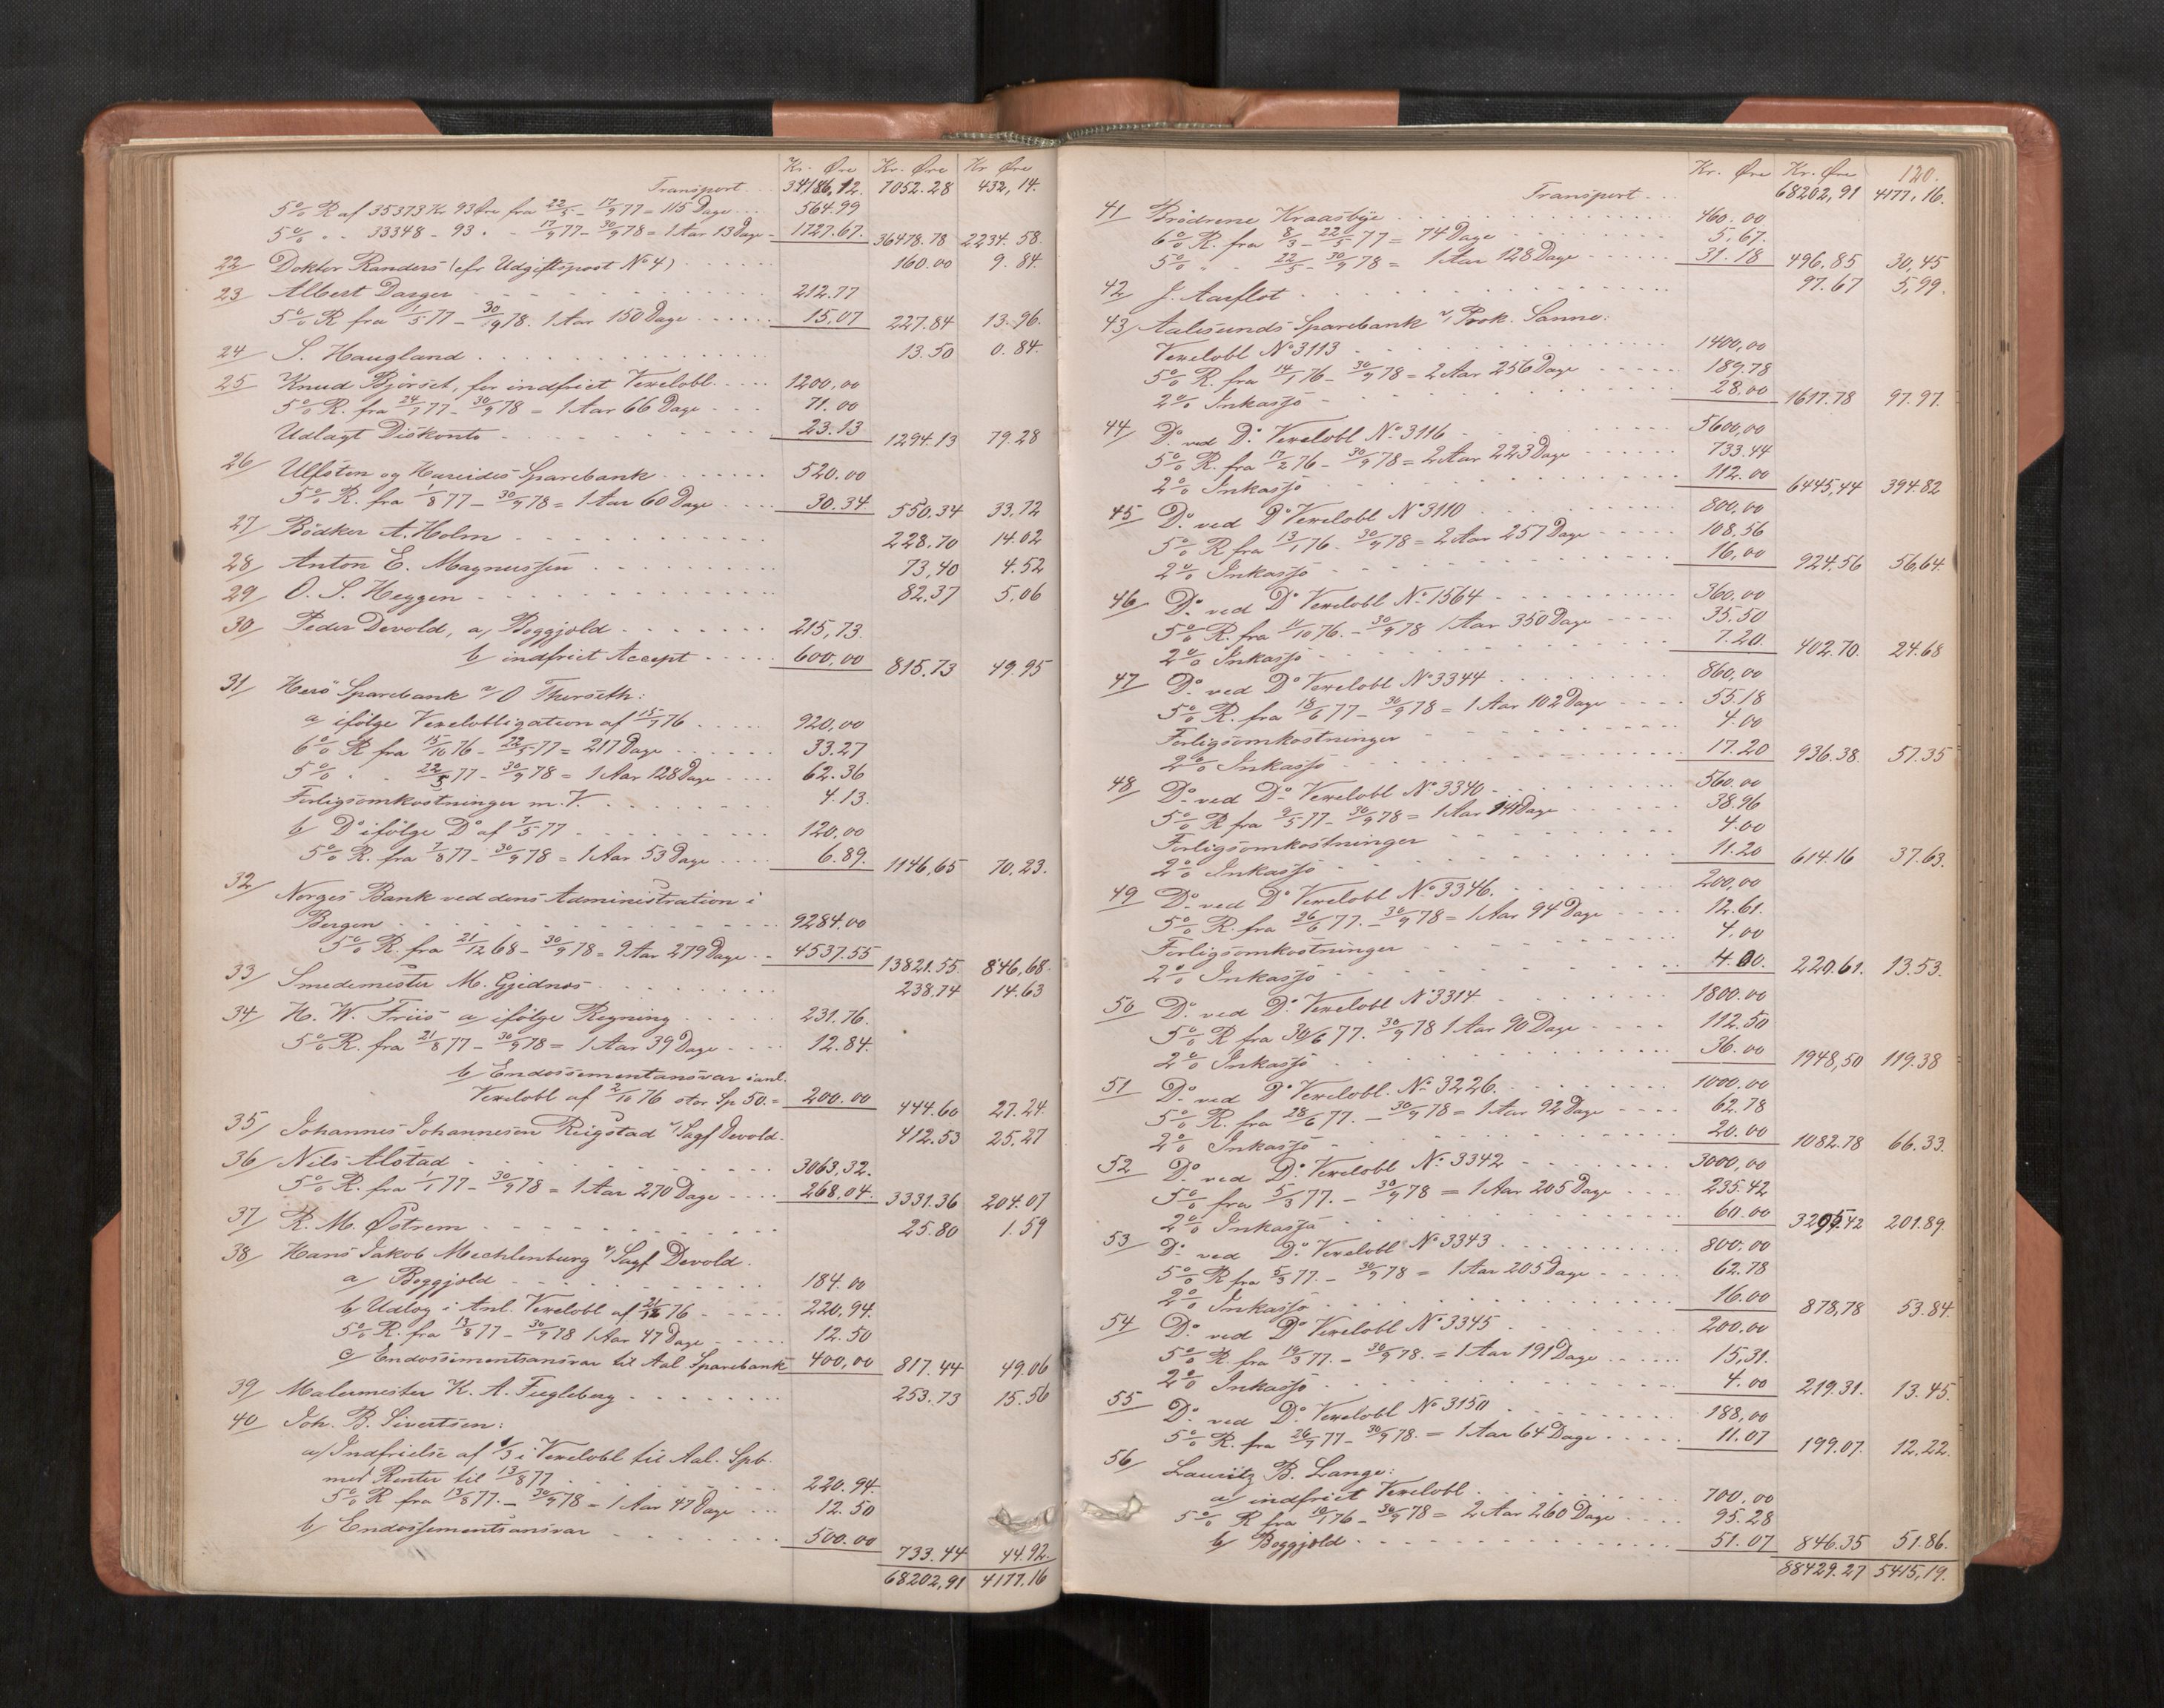 Kr. Øre Kr. Øre Kr Øre
Transport 34186,12. 7052.28 432,14.
5% R af 35373 Kr 93 Øre fra 22/5 - 17/9 77 = 115 Dage 564.99
5% " " 33348 - 93 " - 17/9 77 - 30/9 78 = 1 Aar 13 Dage 1727.67. 36478.78 2234.58.
22/ Doktor Randers (cfr Udgiftspost No 4) 160.00 9.84.
23 Albert Darger 212.77
5% R fra 1/5 77 - 30/9 78. 1 Aar 150 Dage 15,07 227.84 13.96.
24 S. Haugland 13.50 0.84.
25 Knud Bjørset, for indfriet Vexelobl. 1200,00
5% R. fra 24/7 77 - 30/9 78 = 1 Aar 66 Dage 71.00
Udlagt Diskonto 23.13 1294.13 79.28
26 Ulfsten og Hareides Sparebank 520.00
5% R. fra 1/8 77 - 30/9 78 = 1 Aar 60 Dage 30.34. 550,34 33,72
27/ Bødker A. Holm 228.70 14.02
28/ Anton E. Magnussen 73,40 4.52
29/ O. S. Heggen 82,37 5,06
30/ Peder Devold, a, Boggjæld 215,73.
b, indfriet Accept 600,00 815,73 49.95
31/ Herö Sparebank v/ O Thorseth:
a, ifølge Vexelobligation af 15/7 76 920,00
6% R fra 15/10 76 - 22/5 77 = 217 Dage 33.27
5% " " 22/5 77 - 30/9 78 = 1 Aar 128 Dage 62.36
Forligsomkostninger m. V. 4.13.
b, Do ifølge Do af 7/5 77 120,00
5% R. fra 7/8 77 - 30/9 78 = 1 Aar 53 Dage 6.89. 1146,65 70,23.
32/ Norges Bank ved dens Administration i
Bergen 9284.00
5% R. fra 21/12 68 - 30/9 78 = 9 Aar 279 Dage 4537.55 13821.55. 846,68.
33/ Smedemester M. Gjidnes 238.74 14.63
34/ H. W. Friis a, ifølge Regning 231.76.
5% R. fra 21/8 77 - 30/9 78 = 1 Aar 39 Dage 12.84.
b, Endossementansvar i anl.
Vexelobl af 2/10 76 stor Sp 50. = 200.00 444.60 27.24.
35/ Johannes Johannesen Reigstad v/ Sagf Devold. 412.53 25,27
36/ Nils Alstad 3063,32.
5% R. fra 1/1 77 - 30/9 78 = 1 Aar 270 Dage 268,04. 3331.36 204.07
37/ R. M. Østrem 25.80 1.59
38/ Hans Jakob Mechlenburg v/ Sagf Devold.
a/ Boggjæld 184.00
b, Udlæg i Anl. Vexelobl af 21/12 76 220,94.
5% R. fra 13/8 77 - 30/9 78 1 Aar 47 Dage 12.50
c, Endossementsansvar til Aal. Sparebank 400,00 817.44 49.06
39/ Malermester K. A. Fugleberg 253.73 15.56
40/ Joh. B. Sivertsen:
a/ Indfrielse af 1/3 i Vexelobl til Aal. Spb.
med Renter til 13/8 77 220.94.
5% R fra 13/8 77. - 30/9 78 = 1 Aar 47 Dage 12.50
b/ Endossementsansvar 500.00 733.44 44.92.
68202,91 4177.16
Kr. Øre Kr. Øre 120.
Transport 68202,91 4177,16.
41 Brödrene Kraasbye 460.00
6% R. fra 8/3 - 22/5 77 = 74 Dage 5,67.
5% " " 22/5 - 30/9 78 = 1 Aar 128 Dage 31.18 496,85 30,45
42/ J. Aarflot 97.67 5,99.
43/ Aalesunds Sparebank v/ Prok. Sanne:
Vexelobl No 3113 1400,00
5% R. fra 14/1 76 - 30/9 78 = 2 Aar 256 Dage 189.78
2% Inkasso 28,00 1617.78 97.97.
44/ Do ved Do Vexelobl No 3116 5600,00
5% R. fra 17/2 76 - 30/9 78 = 2 Aar 223 Dage 733.44
2% Inkasso 112.00 6445,44 394.82
45/ Do ved Do Vexelobl No 3110 800,00
5% R fra 13/1 76 - 30/9 78 = 2 Aar 257 Dage 108,56
2% Inkasso 16,00 924.56 56,64.
46/ Do ved Do Vexelobl No 1564 360,00
5% R. fra 11/10 76. - 30/9 78 1 Aar 350 Dage 35.50
2% Inkasso 7.20. 402.70. 24.68
47/ Do ved Do Vexelobl No 3344 860,00
5% R. fra 18/6 77 - 30/9 78 = 1 Aar 102 Dage 55.18
Forligsomkostninger 4.00
2% Inkasso 17.20 936.38. 57.35
48/ Do ved Do Vexelobl No 3340 560.00
5% R fra 9/5 77 - 30/9 78 = 1 Aar 141 Dage 38.96
Forligsomkostninger 4.00
2% Inkasso 11.20 614.16 37.63.
49/ Do ved Do Vexelobl No 3346. 200,00
5% R. fra 26/6 77. - 30/9 78 = 1 Aar 94 Dage 12.61.
Forligsomkostninger 4.00
2% Inkasso 4.00. 220.61. 13.53.
50/ Do ved Do Vexelobl No 3314 1800.00
5% R fra 30/6 77. 30/9 78 1 Aar 90 Dage 112.50
2% Inkasso 36.00 1948,50 119.38
51/ Do ved Do Vexelobl. No 3226. 1000.00
5% R. fra 28/6 77. - 30/9 78 = 1 Aar 92 Dage 62.78
2% Inkasso 20.00 1082.78 66.33.
52/ Do ved Do Vexelobl No 3342 3000,00
5% fra 5/3 77. - 30/9 78 = 1 Aar 205 Dage 235.42
2% Inkasso 60.00 3295.42 201.89.
53/ Do ved Do Vexelobl No 3343 800.00
5% R fra 5/3 77. - 30/9 78 = 1 Aar 205 Dage 62.78
2% Inkasso 16.00 878,78 53.84.
54/ Do ved Do Vexelobl No 3345 200.00
5% R. fra 19/3 77. - 30/9 78. = 1 Aar 191 Dage 15,31.
2% Inkasso 4.00 219.31. 13.45.
55/ Do ved Do Vexelobl No 3150 188,00
5% R. fra 26/7 77 - 30/9 78. = 1 Aar 64 Dage 11.07 199.07. 12.22.
56/ Lauritz B. Lange:
a/ indfriet Vexelobl 700,00
5% R fra 10/1 76 - 30/9 78 = 2 Aar 260 Dage 95.28
b/ Boggjæld 51.07 846.35 51.86.
88429.27 5415,19.